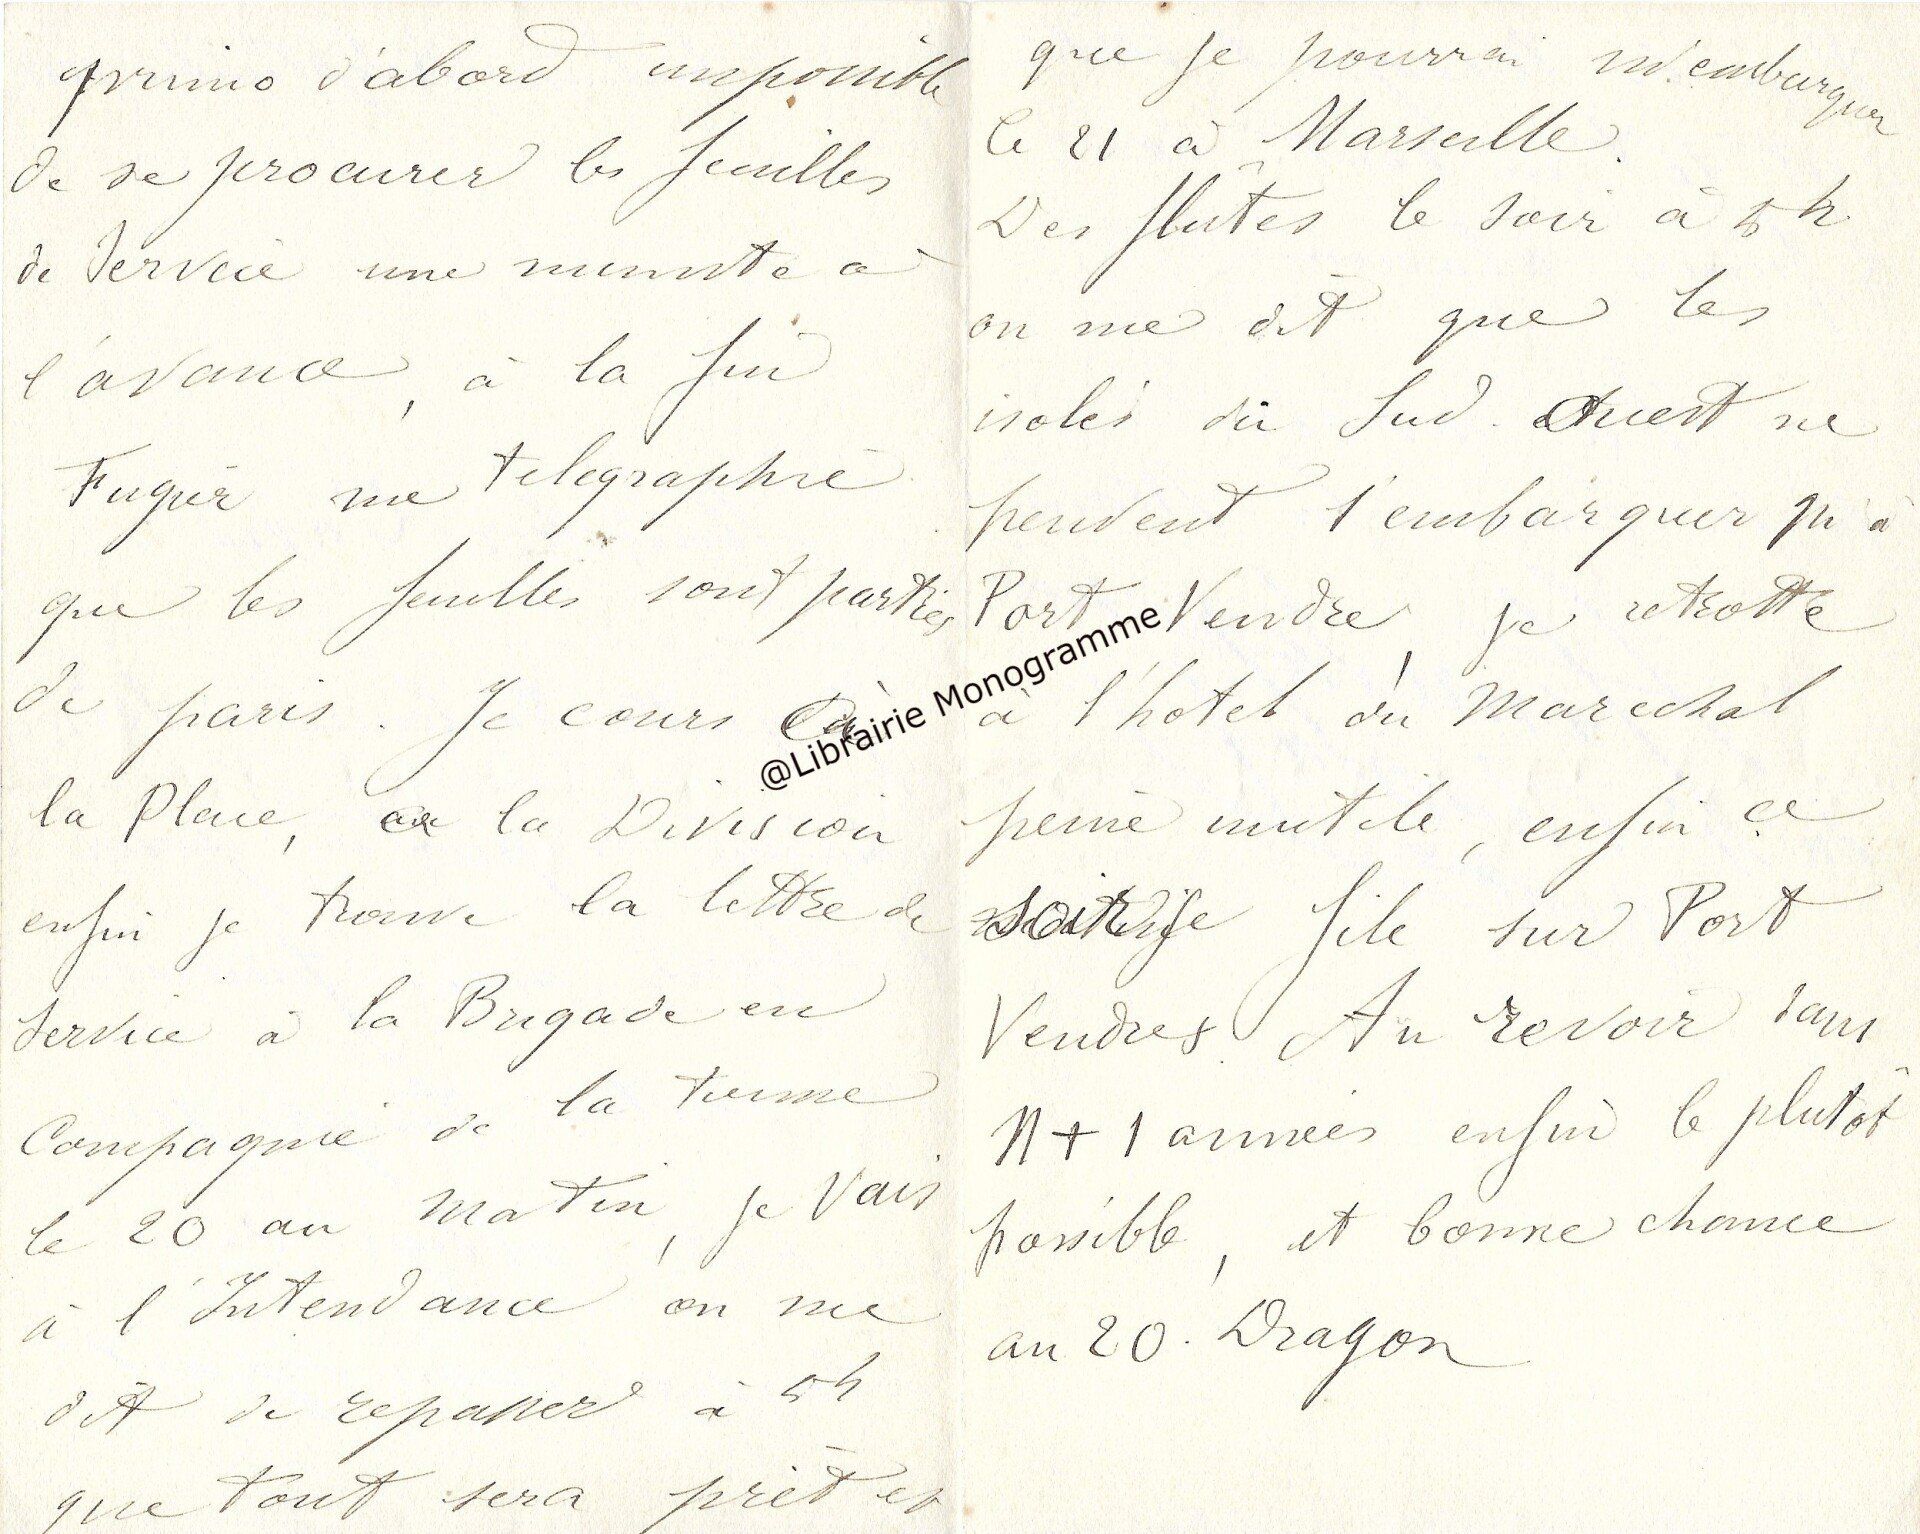 primo d'abord impossible
de se procurer les feuilles
de Service une minute à
l'avance, à la fin
Fugier me telegraphie
que les feuilles sont parties
de paris. Je cours à
la Place, à la Division
enfin je trouve la lettre de
Service à la Brigade en
Compagnie de la tienne
le 20 au matin, je vais
à l'Intendance on me
dit de repasser à 5h
que tout sera prêt et
que je pourrai m'embarquer
le 21 à Marseille.
Des flûtes le soir à 5h
on me dit que les
isolés du Sud. Ouest ne
peuvent s'embarquer qu'à
Port Vendre, je retrotte
à l'hotel du Marechal
peine inutile, enfin ce
soir je file sur Port
Vendres. Au revoir dans
N + 1 années enfin le plutôt
possible, et bonne chance
au 20. Dragon
@Librairie Monogramme